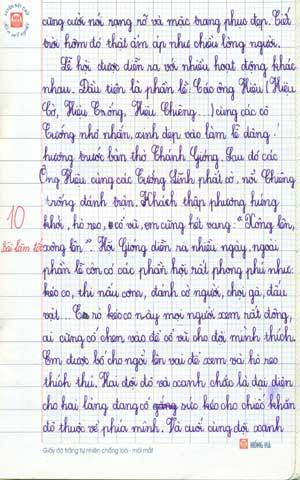 cũng cười nói rạng rỡ và mặc trang phục đẹp. Tiết
trời hôm đó thật ấm áp như chiều lòng người.
Lễ hội được diễn ra với nhiều hoạt động khác
nhau. Đầu tiên là phần lễ: Các ông Hiệu (Hiệu
Cờ, Hiệu Trống, Hiệu Chiêng...) cùng các cô
Tướng nhỏ nhắn, xinh đẹp vào làm lễ dâng
hương trước bàn thờ Thánh Gióng. Sau đó các
Ông Hiệu cùng các Tướng lĩnh phất cờ, nổi Chiêng
trống đánh trận. Khách thập phương hứng
khởi, hò reo, cổ vũ, em cũng hét vang: "Xông lên,
xông lên". Hội Gióng diễn ra nhiều ngày, ngoài
phần lễ còn có các phần hội rất phong phú như:
kéo co, thi nấu cơm, đánh cờ người, chọi gà, đấu
vật... Trò kéo co này mọi người xem rất đông,
ai cũng cố chen vào để cổ vũ cho đội mình thích.
Em được bố cho ngồi lên vai để xem và hò reo
thích thú. Hai đội đỏ và xanh chắc là đại diện
cho hai làng đang cố gắng sức kéo cho chiếc khăn
đỏ thuộc về phía mình. Và cuối cùng đội xanh
10
Bài làm tốt
Giấy độ trắng tự nhiên chống lóa - mỏi mắt
HỒNG HÀ